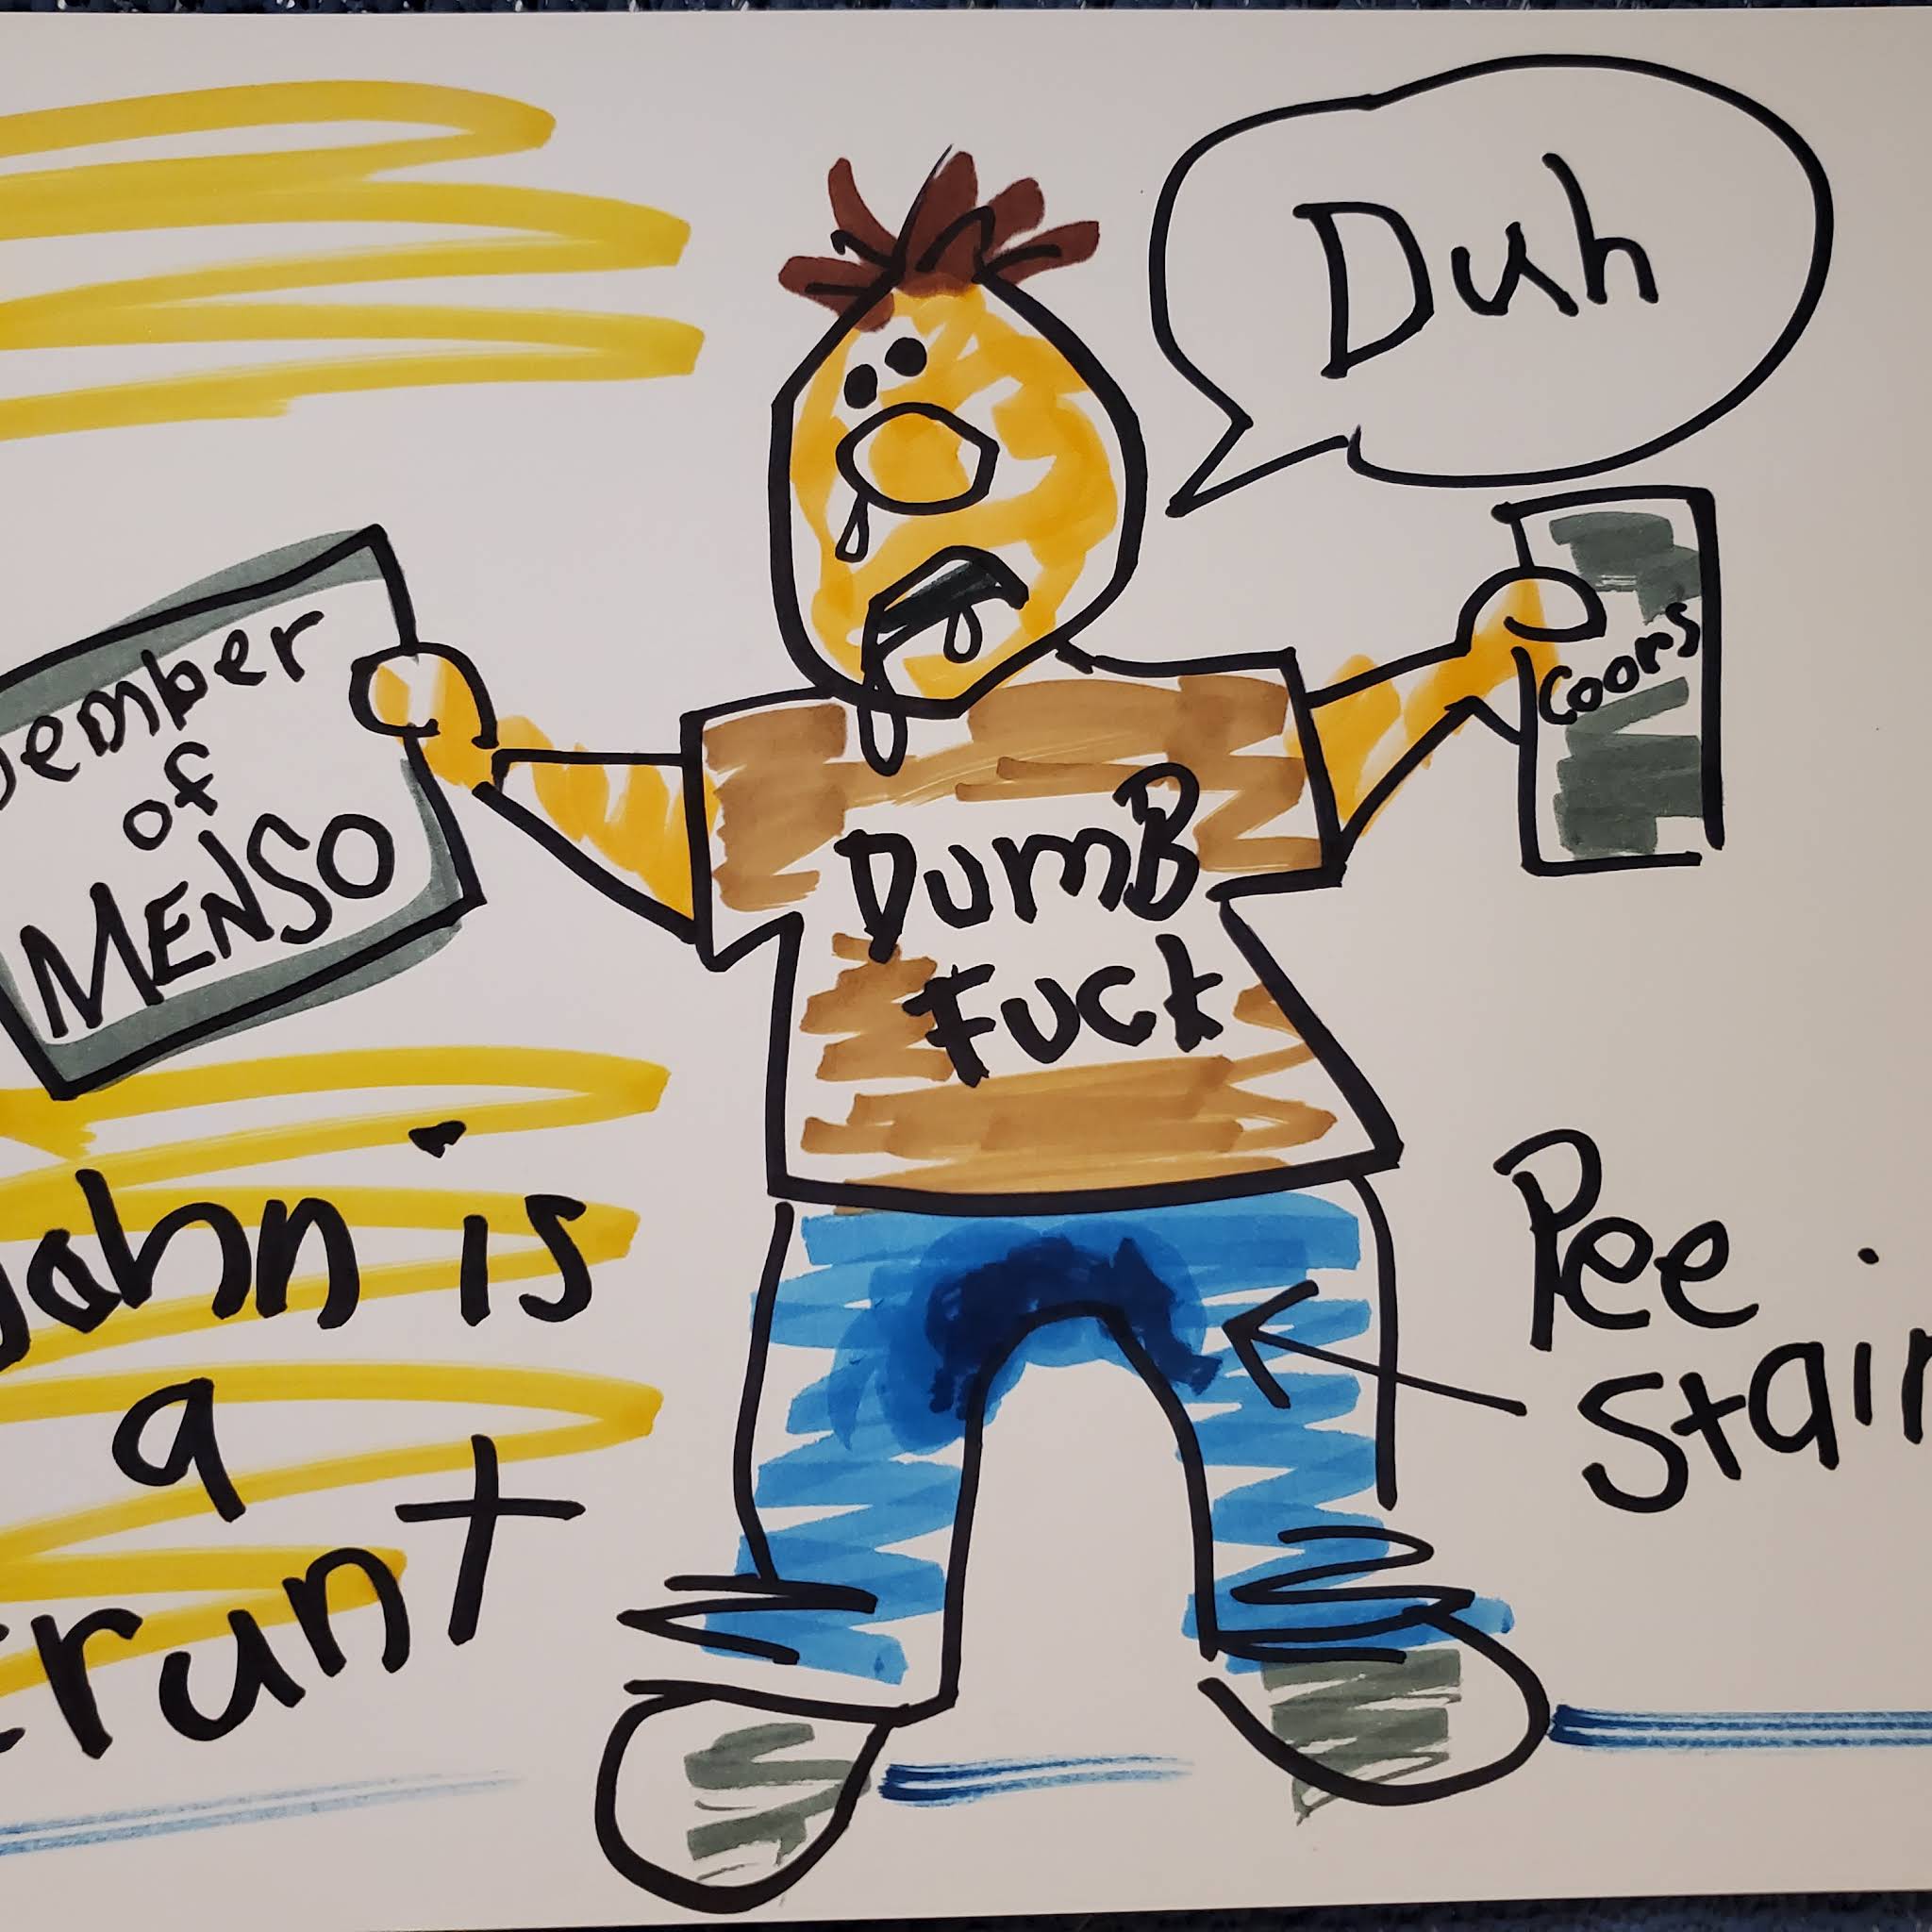 Duh
Member
of
MENSO
Coors
DumB
Fuck
John is
a
Pee
Stain